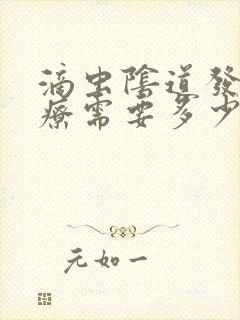 滴虫陰道發
療需要多少
元如一